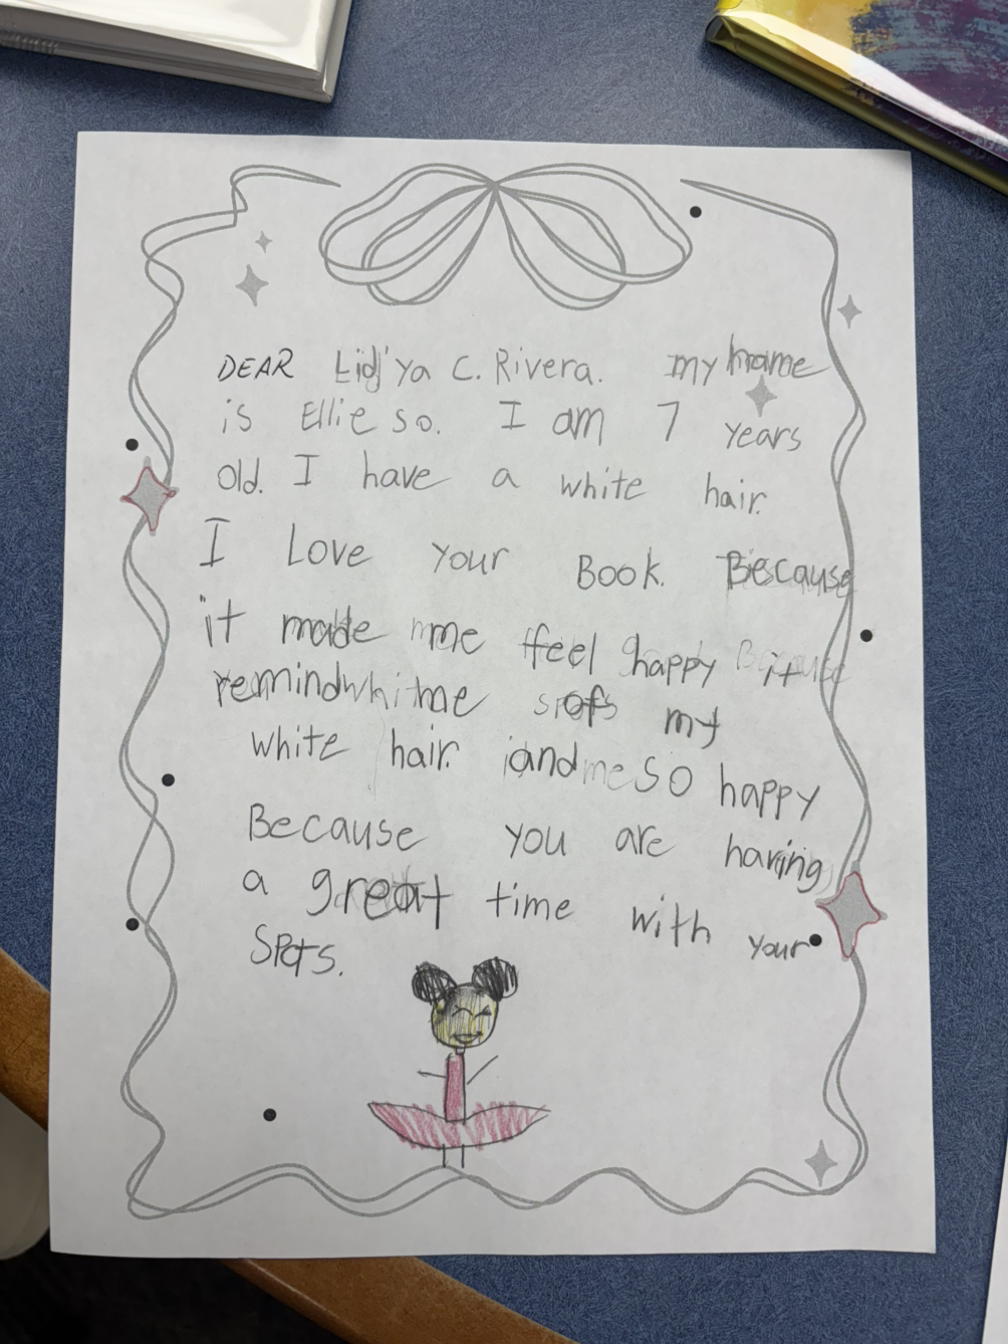 DEAR Lidj'ya C. Rivera. my name
is Ellie so. I am 7 years
old. I have a white hair.
I Love your Book. Because
it made me feel happy it
remind me of my
white hair. and so happy
Because you are having
a great time with your
Spots.